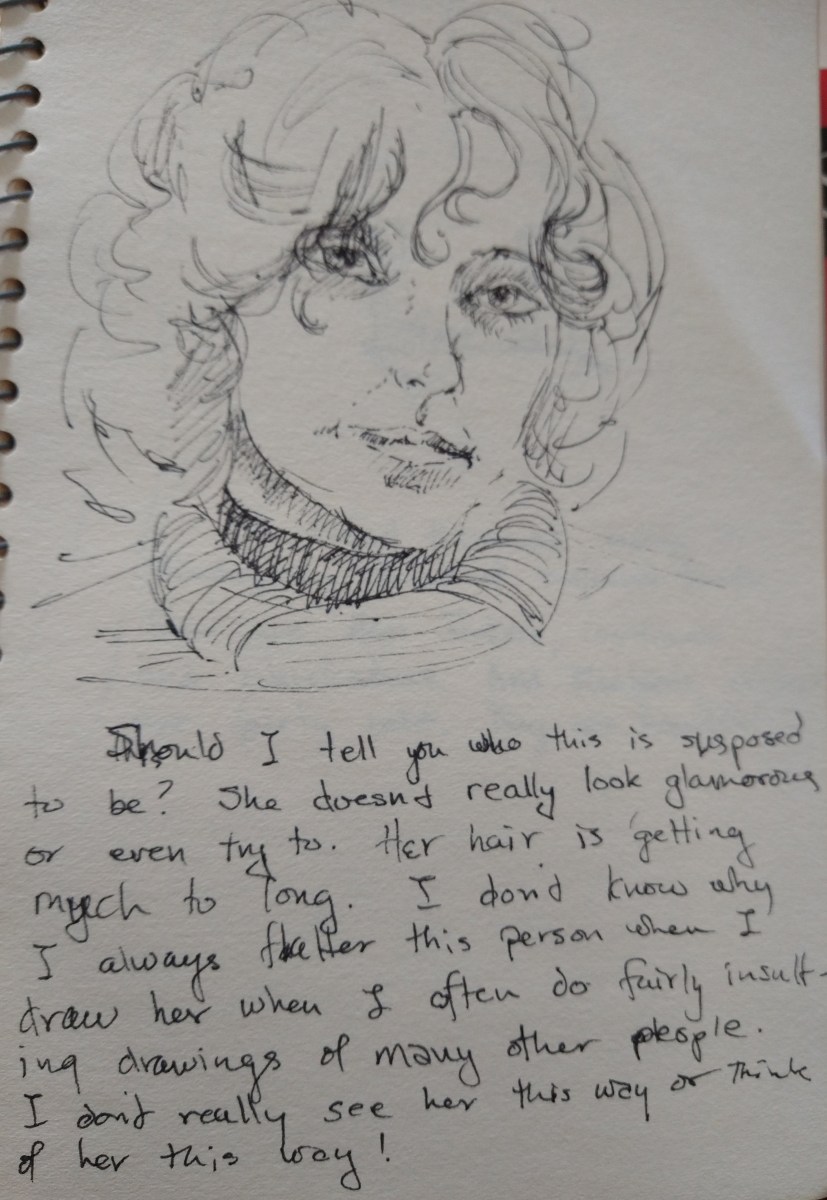 Should I tell you who this is susposed
to be? She doesnt really look glamorous
or even try to. Her hair is getting
much to long. I don't know why
I always flatter this person when I
draw her when I often do fairly insult-
ing drawings of many other people.
I don't really see her this way or think
of her this way!